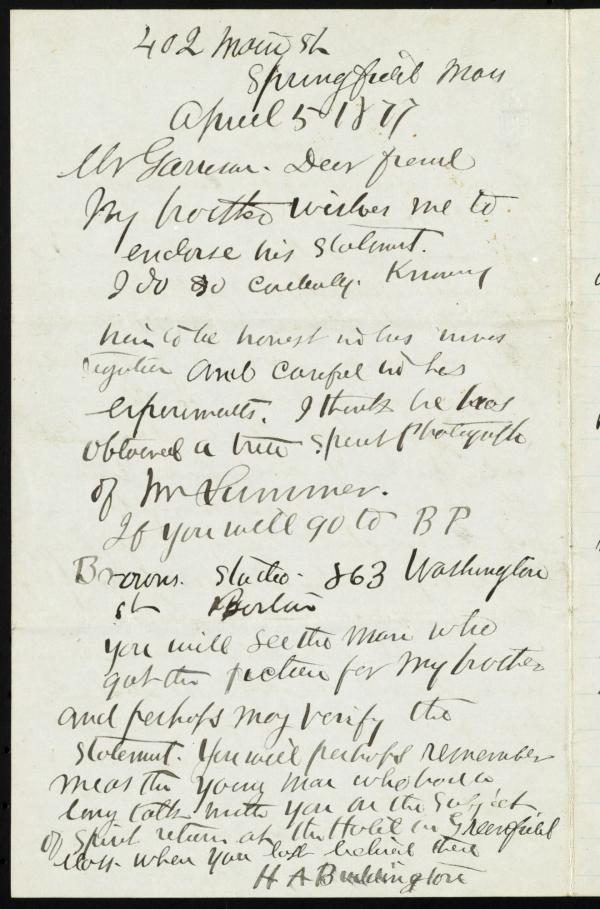 402 Main st
Springfield Mass
April 5 1877
Mr Garrison. Dear friend
My brother wishes me to
endorse his statement.
I do so cordially. Knowing
him to be honest in his inves
tigation and careful in his
experiments. I think he has
obtained a true Spirit Photograph
of Mr Sumner.
If you will go to B P
Browns. Studio. 863 Washington
st Boston
you will see the man who
got the picture for my brother
and perhaps may verify the
statement. You will perhaps remember
me as the young man who had a
long talk with you on the subject
of spirit return at the Hotel in Greenfield
Mass. when you left behind there
H A Budington